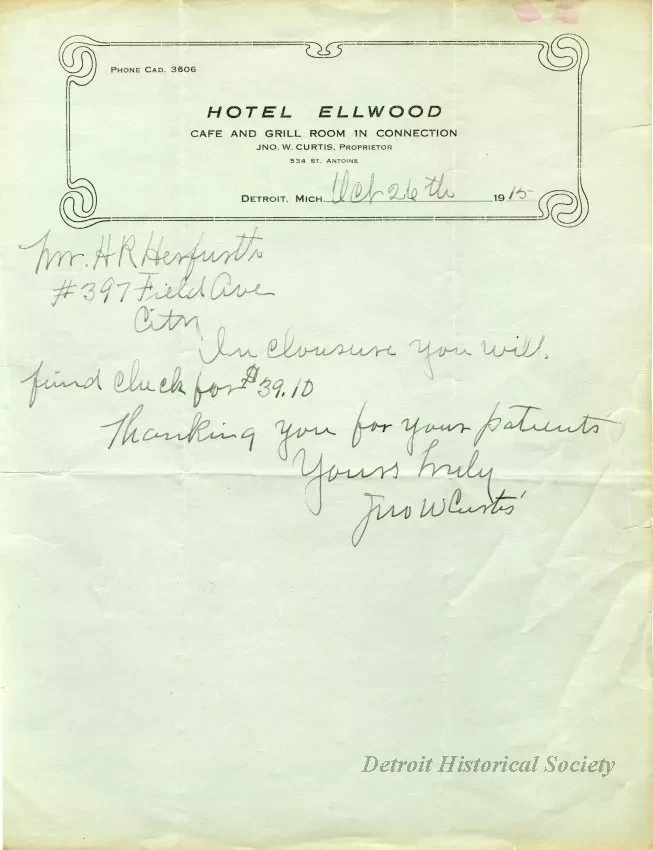 PHONE CAD. 3606
HOTEL ELLWOOD
CAFE AND GRILL ROOM IN CONNECTION
JNO. W. CURTIS, PROPRIETOR
534 ST. ANTOINE
DETROIT, MICH. Oct 26th 1915
Mr. H R Herfurth
#397 Field Ave
City
In clousure you will.
find check for $39.10
Thanking you for your patients
Yours truly
Jno W Curtis
Detroit Historical Society